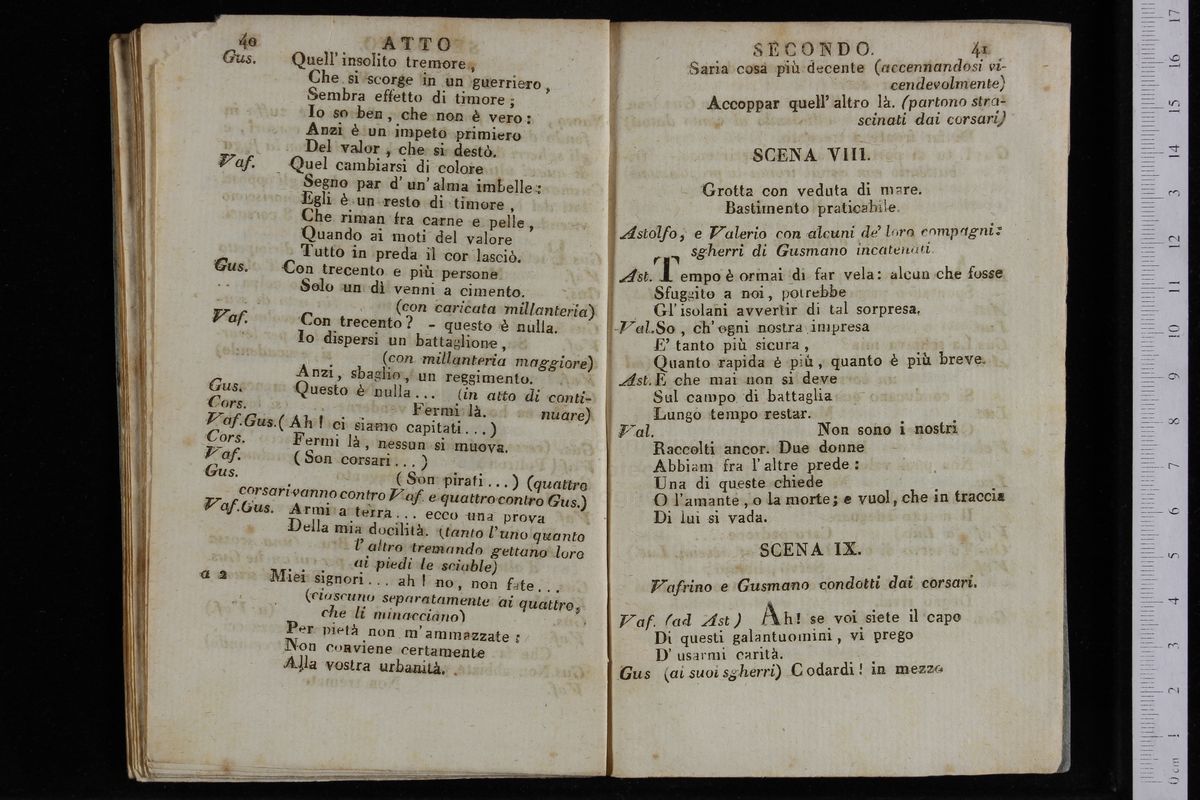 40
ATTO
Gus. Quell' insolito tremore,
Che si scorge in un guerriero,
Sembra effetto di timore;
Io so ben, che non è vero:
Anzi è un impeto primiero
Del valor, che si destò.
Vaf. Quel cambiarsi di colore
Segno par d' un' alma imbelle:
Egli è un resto di timore,
Che riman fra carne e pelle,
Quando ai moti del valore
Tutto in preda il cor lasciò.
Gus. Con trecento e più persone
Solo un dì venni a cimento.
(con caricata millanteria)
Vaf. Con trecento? - questo è nulla.
Io dispersi un battaglione,
(con millanteria maggiore)
Anzi, sbaglio, un reggimento.
Gus. Questo è nulla... (in atto di conti-
Cors. Fermi là. nuare)
Vaf.Gus. (Ah! ci siamo capitati...)
Cors. Fermi là, nessun si muova.
Vaf. (Son corsari...)
Gus. (Son pirati...) (quattro
corsari vanno contro Vaf. e quattro contro Gus.)
Vaf.Gus. Armi a terra... ecco una prova
Della mia docilità. (tanto l'uno quanto
l' altro tremando gettano loro
ai piedi le sciable)
a 2 Miei signori... ah! no, non fate...
(ciascuno separatamente ai quattro,
che li minacciano)
Per pietà non m'ammazzate:
Non conviene certamente
Alla vostra urbanità.
SECONDO. 41
Saria cosa più decente (accennandosi vi-
cendevolmente)
Accoppar quell' altro là. (partono stra-
scinati dai corsari)
SCENA VIII.
Grotta con veduta di mare.
Bastimento praticabile.
Astolfo, e Valerio con alcuni de' loro compagni:
sgherri di Gusmano incatenati.
Ast. Tempo è ormai di far vela: alcun che fosse
Sfuggito a noi, potrebbe
Gl' isolani avvertir di tal sorpresa.
Val. So, ch' ogni nostra impresa
E' tanto più sicura,
Quanto rapida è più, quanto è più breve.
Ast. E che mai non si deve
Sul campo di battaglia
Lungo tempo restar.
Val. Non sono i nostri
Raccolti ancor. Due donne
Abbiam fra l' altre prede:
Una di queste chiede
O l'amante, o la morte; e vuol, che in traccia
Di lui si vada.
SCENA IX.
Vafrino e Gusmano condotti dai corsari.
Vaf. (ad Ast) Ah! se voi siete il capo
Di questi galantuomini, vi prego
D' usarmi carità.
Gus (ai suoi sgherri) Codardi! in mezzo
17
16
15
14
13
12
11
10
9
8
7
6
5
4
3
2
1
0 cm